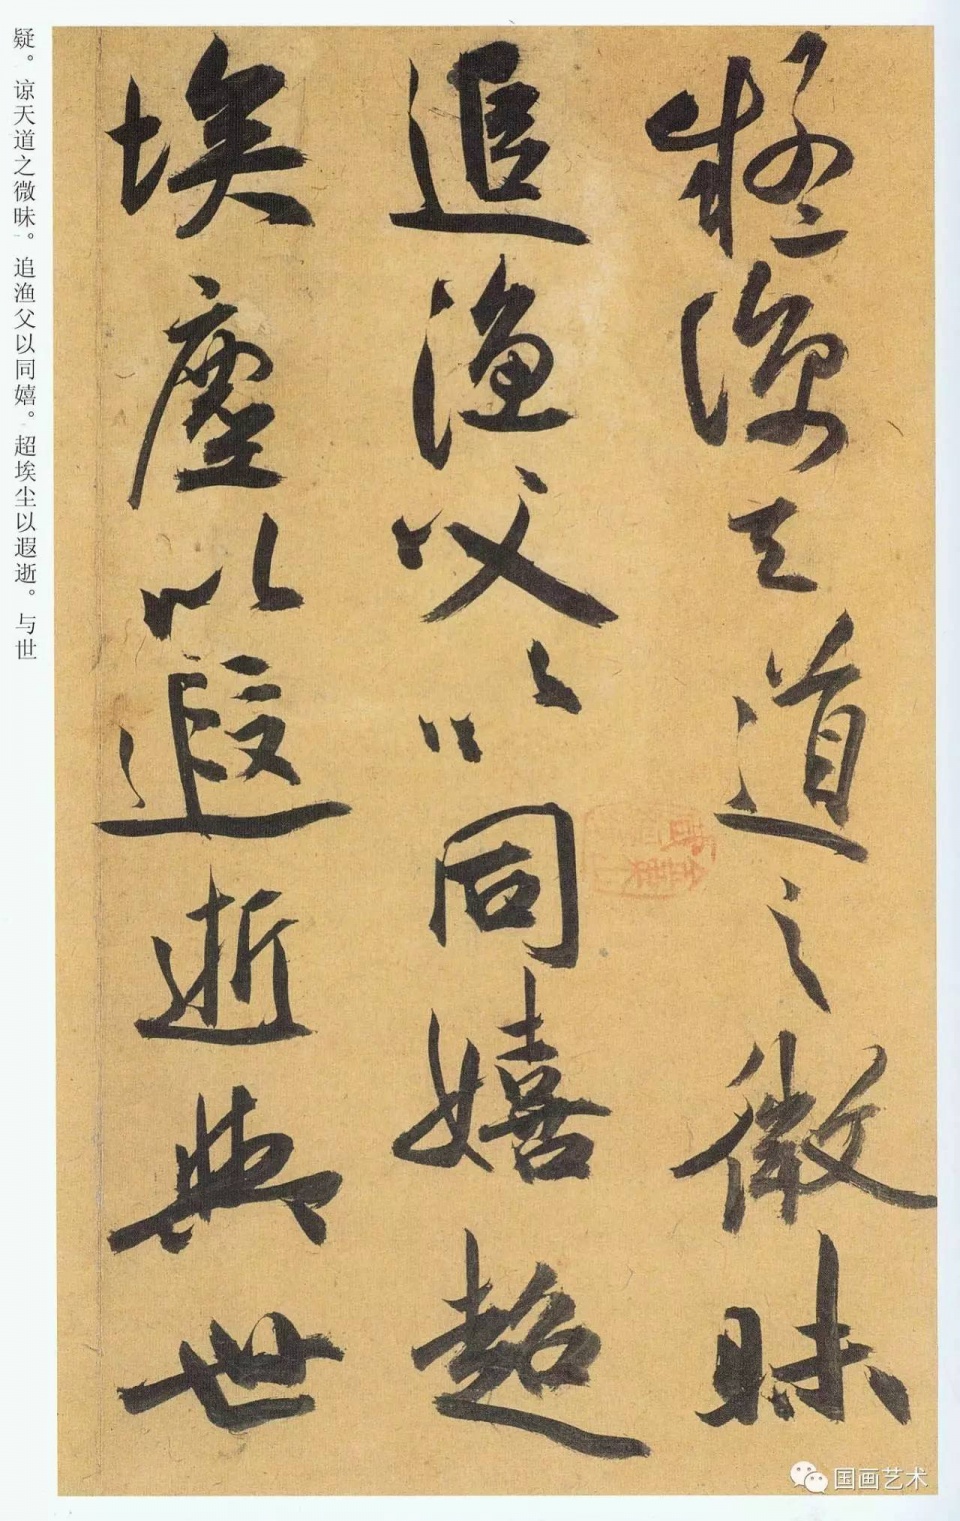 疑谅天道之微昧
追渔父以同嬉超
埃塵以遐逝與世
疑。谅天道之微昧。追渔父以同嬉。超埃尘以遐逝。与世
国画艺术